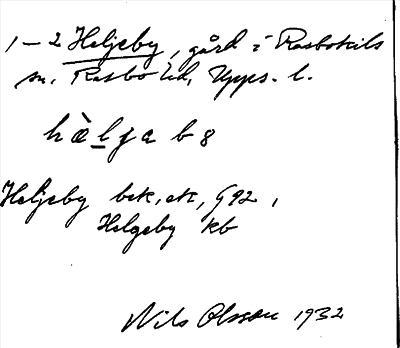 1-2 Heljeby, gård i Rasbokils
sn, Rasbo hd, Upps. l.
hæ̀lja b8
Heljeby bek, ek, G92,
Helgeby kb
Nils Olsson 1932